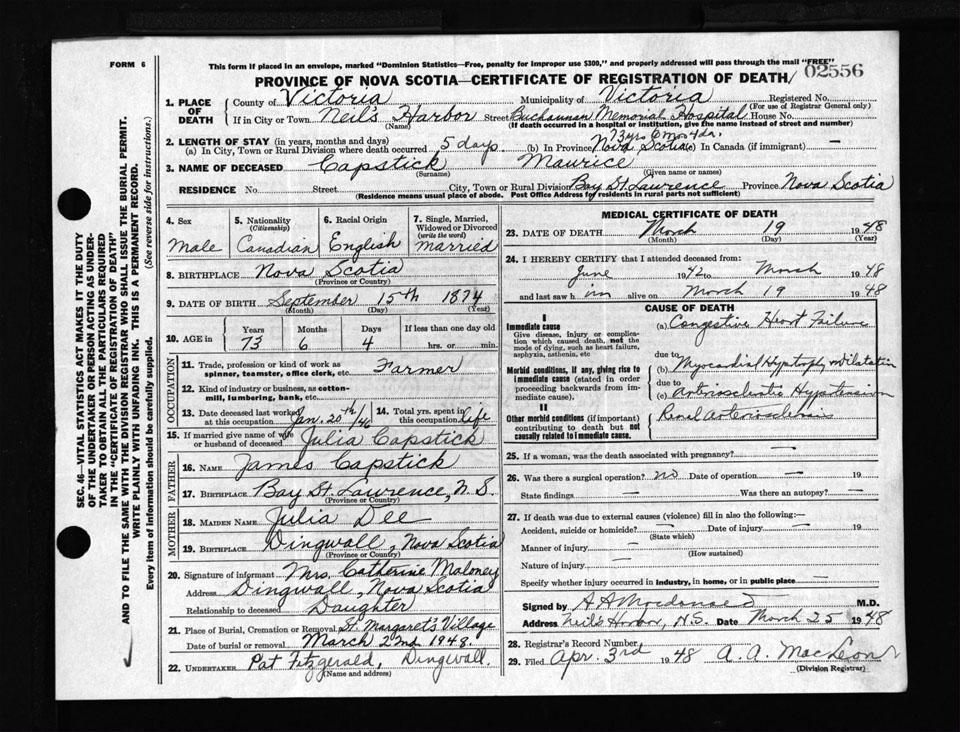 FORM 6
This form if placed in an envelope, marked "Dominion Statistics—Free, penalty for improper use $300," and properly addressed will pass through the mail "FREE"
PROVINCE OF NOVA SCOTIA—CERTIFICATE OF REGISTRATION OF DEATH
02556
1. PLACE OF DEATH
County of Victoria Municipality of Victoria Registered No.
(For use of Registrar General only)
If in City or Town Neil's Harbor Street Buchannan Memorial Hospital House No.
(Name) (If death occurred in a hospital or institution, give the name instead of street and number)
2. LENGTH OF STAY (in years, months and days) 73 yrs 6 mos 4 da.
(a) In City, Town or Rural Division where death occurred 5 days (b) In Province Nova Scotia (c) In Canada (if immigrant) —
3. NAME OF DECEASED Capstick Maurice
(Surname) (Given name or names)
RESIDENCE No. Street City, Town or Rural Division Bay St. Lawrence Province Nova Scotia
(Residence means usual place of abode. Post Office Address for residents in rural parts not sufficient)
4. Sex
Male
5. Nationality (Citizenship)
Canadian
6. Racial Origin
English
7. Single, Married, Widowed or Divorced (write the word)
married
8. BIRTHPLACE Nova Scotia
(Province or Country)
9. DATE OF BIRTH September 15th 1874
(Month) (Day) (Year)
10. AGE in Years Months Days If less than one day old
73 6 4 hrs. or min.
OCCUPATION
11. Trade, profession or kind of work as spinner, teamster, office clerk, etc. Farmer
12. Kind of industry or business, as cotton-mill, lumbering, bank, etc.
13. Date deceased last worked at this occupation Jan. 20th/46
14. Total yrs. spent in this occupation life
15. If married give name of wife or husband of deceased Julia Capstick
FATHER
16. NAME James Capstick
17. BIRTHPLACE Bay St. Lawrence, N.S.
(Province or Country)
MOTHER
18. MAIDEN NAME Julia Dee
19. BIRTHPLACE Dingwall, Nova Scotia
(Province or Country)
20. Signature of informant Mrs. Catherine Maloney
Address Dingwall, Nova Scotia
Relationship to deceased Daughter
21. Place of Burial, Cremation or Removal St. Margaret's Village
Date of burial or removal March 22nd 1948.
22. UNDERTAKER Pat Fitzgerald, Dingwall.
(Name and address)
MEDICAL CERTIFICATE OF DEATH
23. DATE OF DEATH March 19 1948
(Month) (Day) (Year)
24. I HEREBY CERTIFY that I attended deceased from:
June 1942 to March 1948
and last saw him alive on March 19 1948
CAUSE OF DEATH
I
Immediate cause
Give disease, injury or complication which caused death, not the mode of dying, such as heart failure, asphyxia, asthenia, etc
(a) Congestive Heart Failure
due to
Morbid conditions, if any, giving rise to immediate cause (stated in order proceeding backwards from immediate cause).
(b) Myocardial Hypertrophy Dilatation
due to
(c) Arteriosclerotic Hypertension
II
Other morbid conditions (if important) contributing to death but not causally related to immediate cause.
Renal Arteriosclerosis
25. If a woman, was the death associated with pregnancy? —
26. Was there a surgical operation? no Date of operation — 19
State findings — Was there an autopsy? —
27. If death was due to external causes (violence) fill in also the following:—
Accident, suicide or homicide? — Date of injury — 19
(State which)
Manner of injury —
(How sustained)
Nature of injury —
Specify whether injury occurred in industry, in home, or in public place —
Signed by A A Macdonald M.D.
Address Neil's Harbor, N.S. Date March 25 1948
28. Registrar's Record Number
29. Filed Apr. 3rd 1948 A. A. MacLeon
(Division Registrar)
SEC. 46—VITAL STATISTICS ACT MAKES IT THE DUTY
OF THE UNDERTAKER OR PERSON ACTING AS UNDERTAKER
TO OBTAIN ALL THE PARTICULARS REQUIRED
IN THE "CERTIFICATE OF REGISTRATION OF DEATH"
AND TO FILE THE SAME WITH THE DIVISION REGISTRAR WHO SHALL ISSUE THE BURIAL PERMIT.
WRITE PLAINLY WITH UNFADING INK. THIS IS A PERMANENT RECORD.
Every item of information should be carefully supplied. (See reverse side for instructions.)